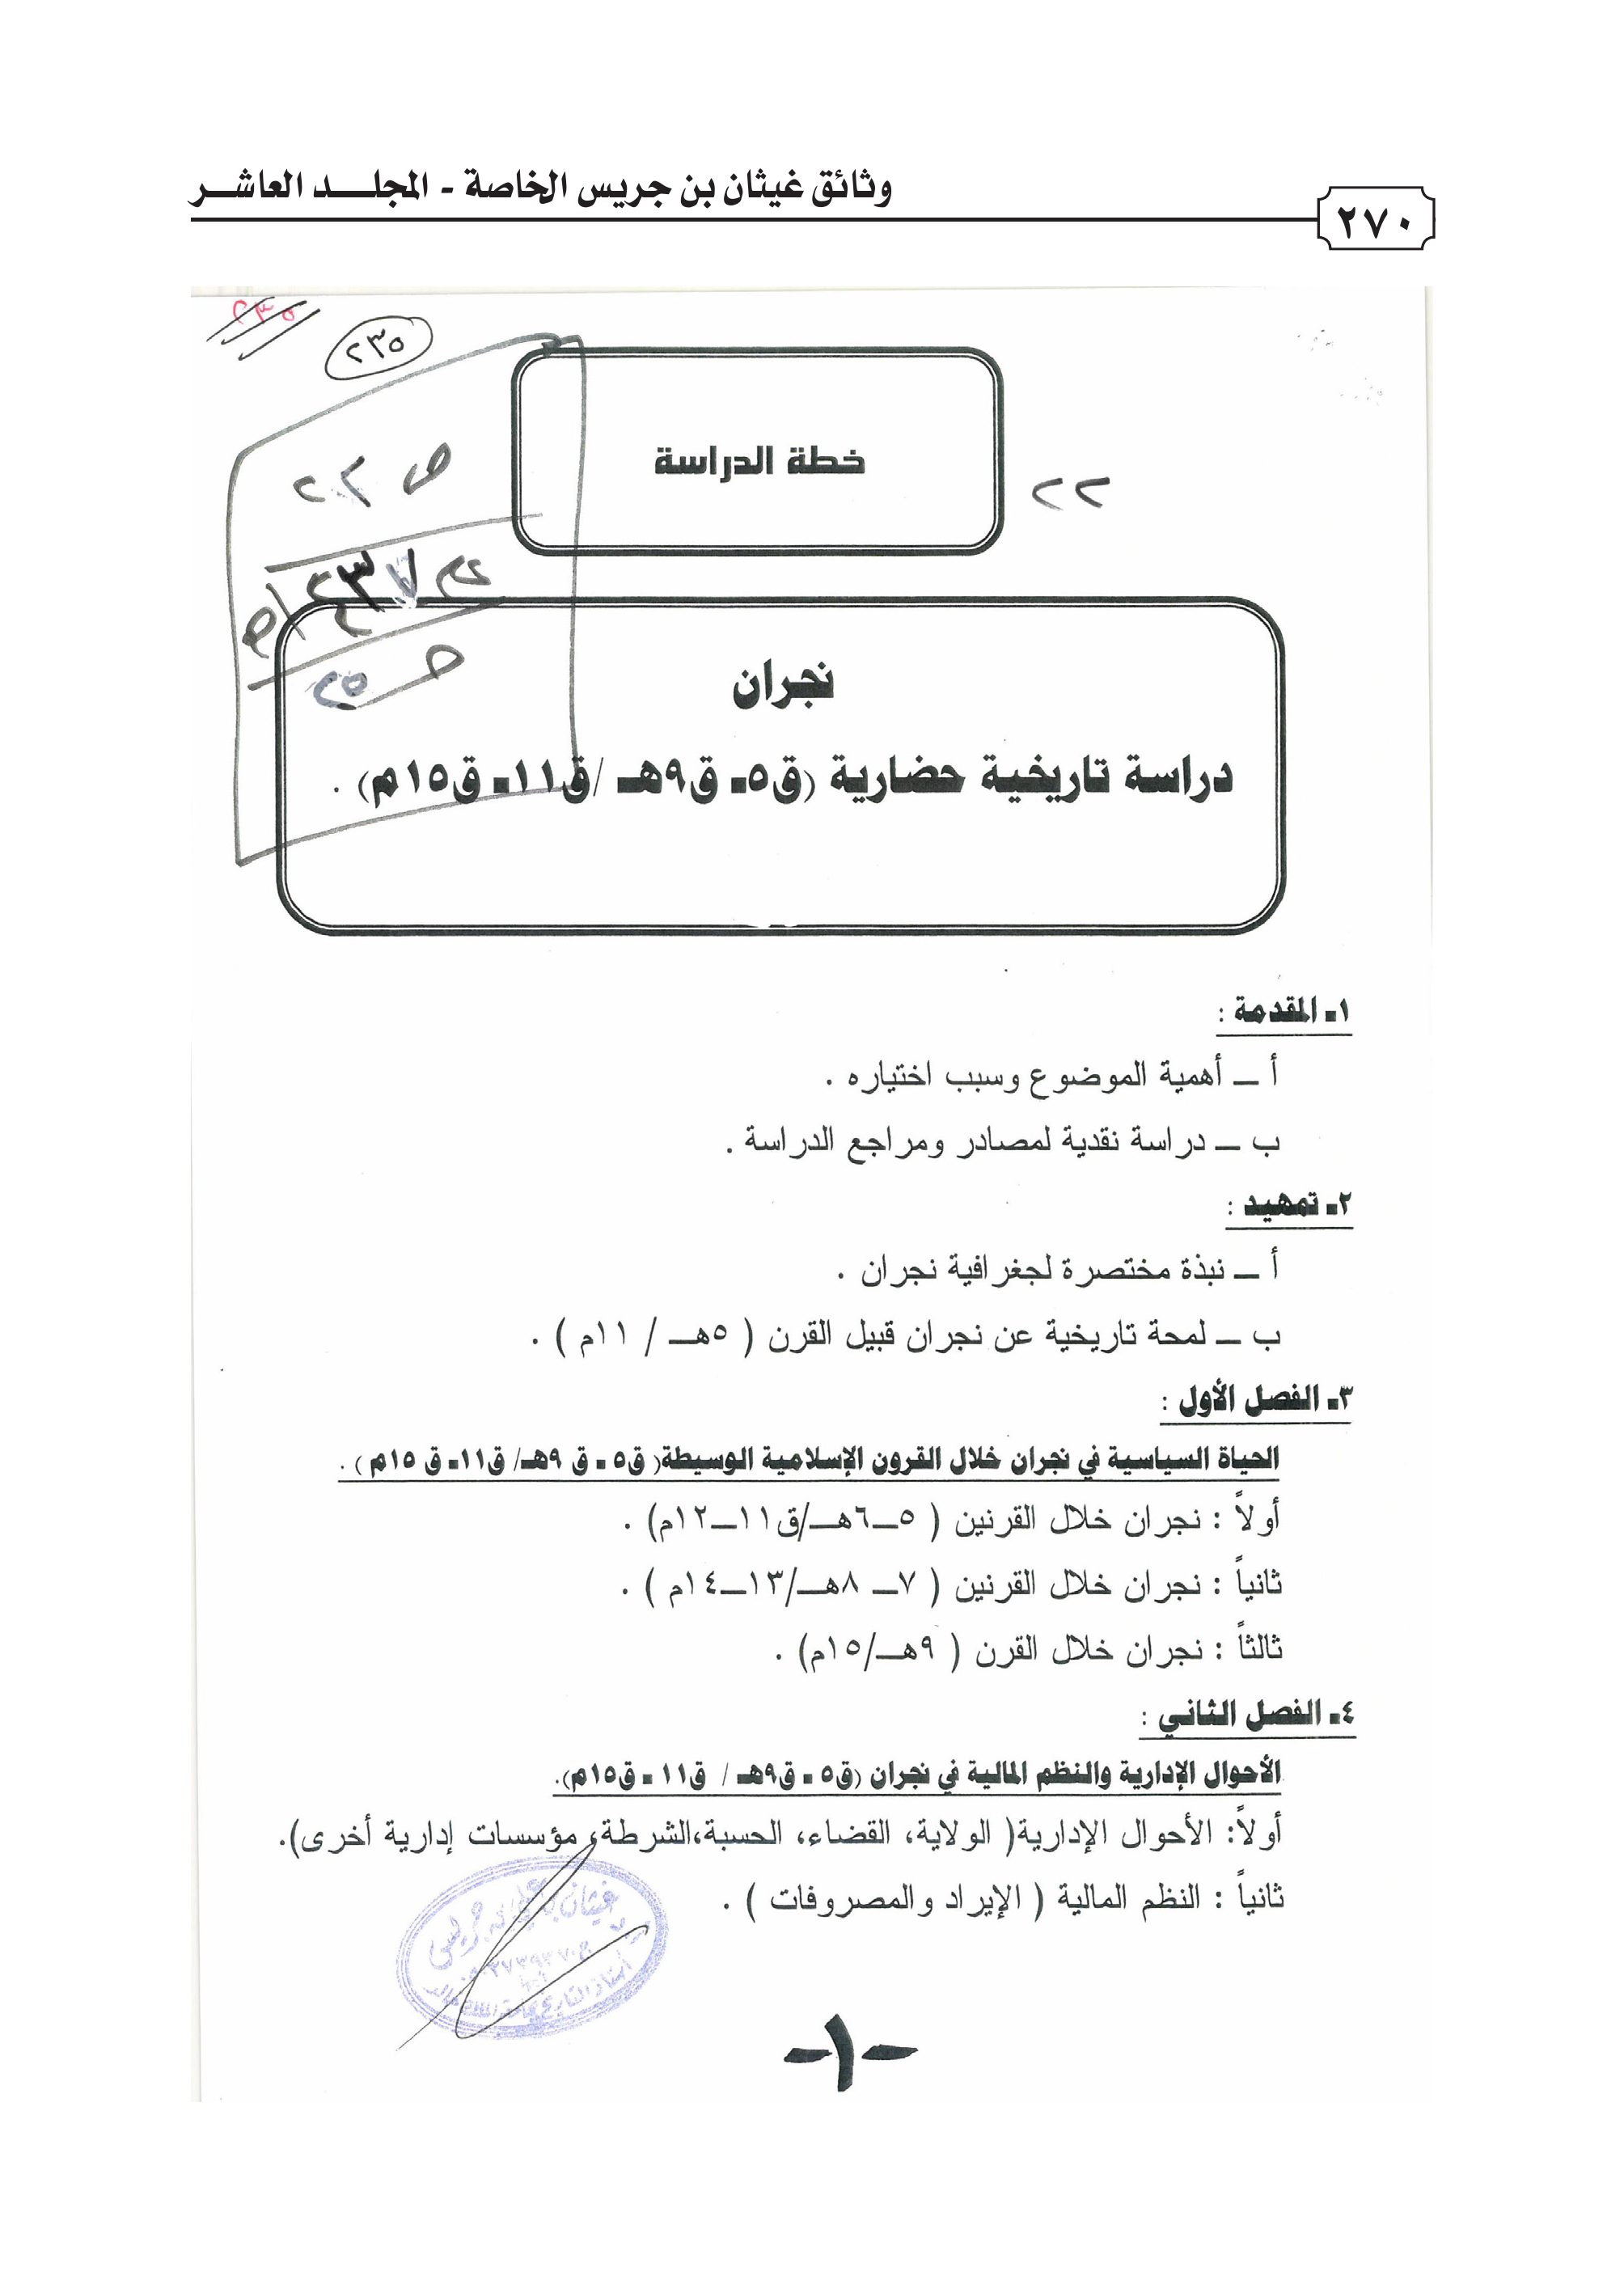 وثائق غيثان بن جريس الخاصة - المجلـــد العاشـــر
٢٧٠
٢٣٥
٢٣٥
خطة الدراسة
٢٢
ص ٢٢
نجران
دراسة تاريخية حضارية (ق٥- ق٩هـ /ق١١- ق١٥م) .
١- المقدمة :
أ ــ أهمية الموضوع وسبب اختياره .
ب ــ دراسة نقدية لمصادر ومراجع الدراسة .
٢- تمهيد :
أ ــ نبذة مختصرة لجغرافية نجران .
ب ــ لمحة تاريخية عن نجران قبيل القرن ( ٥هـ / ١١م ) .
٣- الفصل الأول :
الحياة السياسية في نجران خلال القرون الإسلامية الوسيطة( ق٥ - ق ٩هـ/ ق١١- ق ١٥م ) .
أولاً : نجران خلال القرنين ( ٥ــ٦هــ/ق١١ــ١٢م) .
ثانياً : نجران خلال القرنين ( ٧ــ ٨هــ/١٣ــ١٤م ) .
ثالثاً : نجران خلال القرن ( ٩هــ/١٥م) .
٤- الفصل الثاني :
الأحوال الإدارية والنظم المالية في نجران (ق٥ - ق٩هـ / ق١١ - ق١٥م).
أولاً: الأحوال الإدارية( الولاية، القضاء، الحسبة،الشرطة، مؤسسات إدارية أخرى).
ثانياً : النظم المالية ( الإيراد والمصروفات ) .
غيثان بن علي بن جريس
أستاذ التاريخ بجامعة الملك خالد
-١-